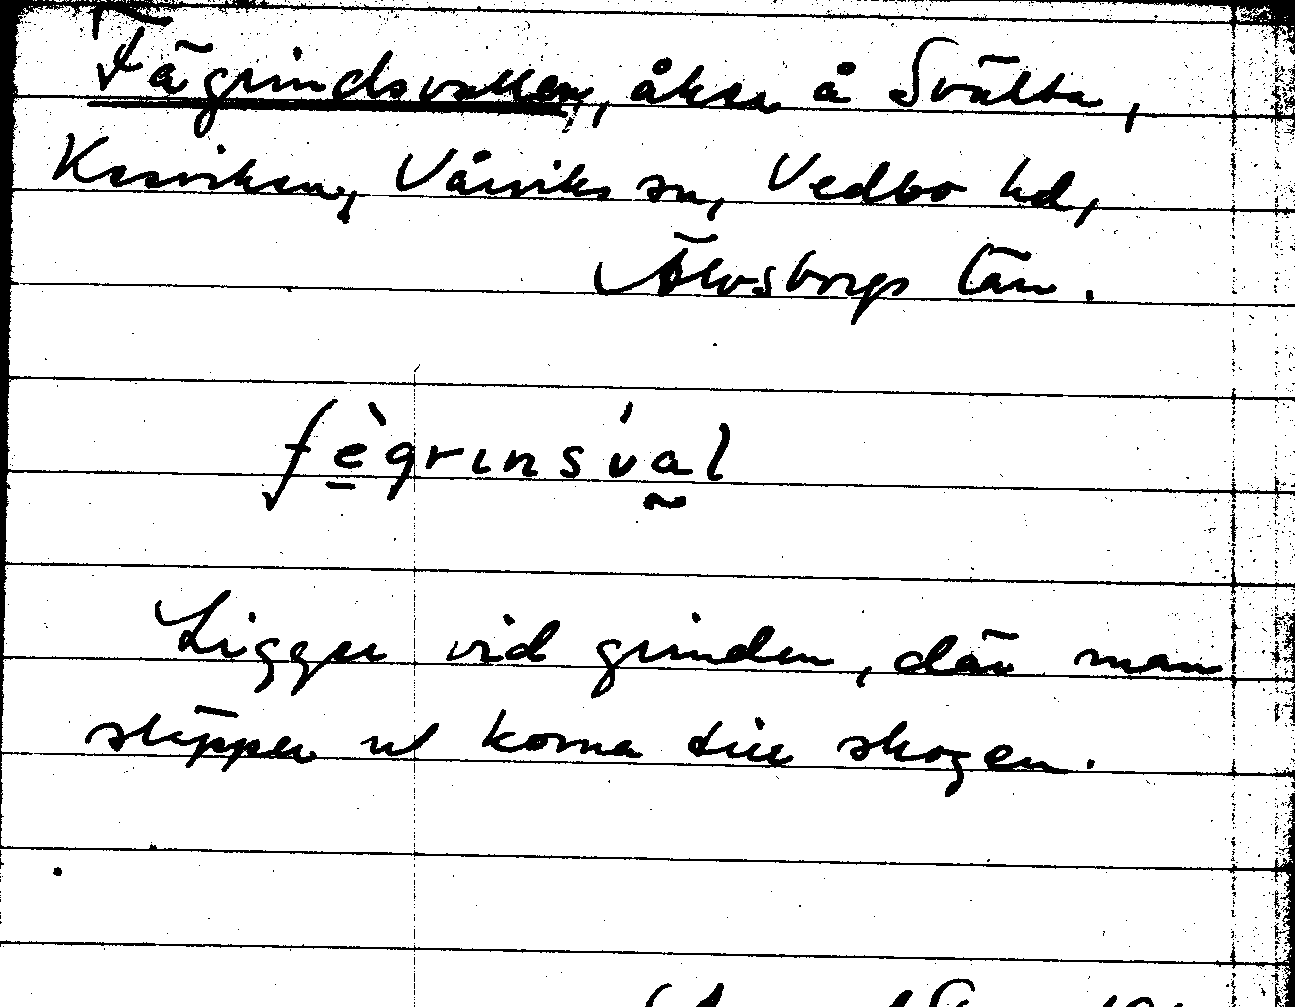 Fägrindsvallen, åker å Svälta,
Kesviken, Vårviks sn, Vedbo hd,
Älvsborgs län.
fègrınsv́al
Ligger vid grinden, där man
släpper ut korna till skogen.